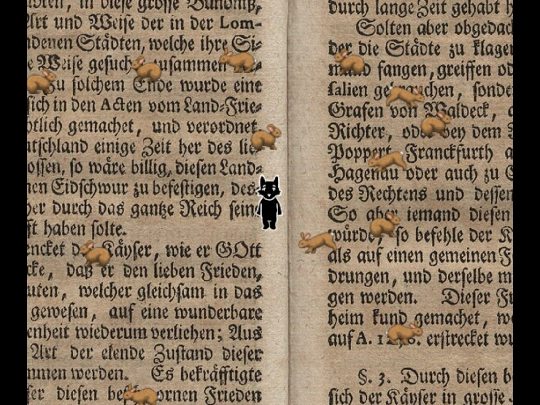 in diese grosse Bündniß,
Art und Weise der in der Lom⸗
ndenen Städten, welche ihre Si⸗
zu solchem Ende wurde eine
sich in den Acten vom Land⸗Frie⸗
htlich gemachet, und verordnet
utschland einige Zeit her des lie⸗
ossen, so wäre billig, diesen Land⸗
nen Eidschwur zu befestigen, des⸗
her durch das gantze Reich sein
ft haben solte.
encket der Käyser, wie er GOtt
cke, daß er den lieben Frieden,
uten, welcher gleichsam in das
gewesen, auf eine wunderbare
enheit wiederum verliehen; Aus
Art der elende Zustand dieser
mmen werden. Es bekräfftigte
ser diesen Frieden
durch lange Zeit gehabt h
Solten aber obgedach
der die Städte zu klagen
man fangen, greiffen od
salien gebrauchen, sonde
Grafen von Waldeck, a
Richter, oder bey dem
Poppert Franckfurth a
Hagenau oder auch zu
des Rechtens und dessen
So aber iemand diesen
würde, so befehle der K
als auf einen gemeinen F
drungen, und derselbe m
gen werden. Dieser Fr
heim kund gemachet, we
auf A. erstrecket wu
§. 3. Durch diesen b
sich der Käyser in grosse